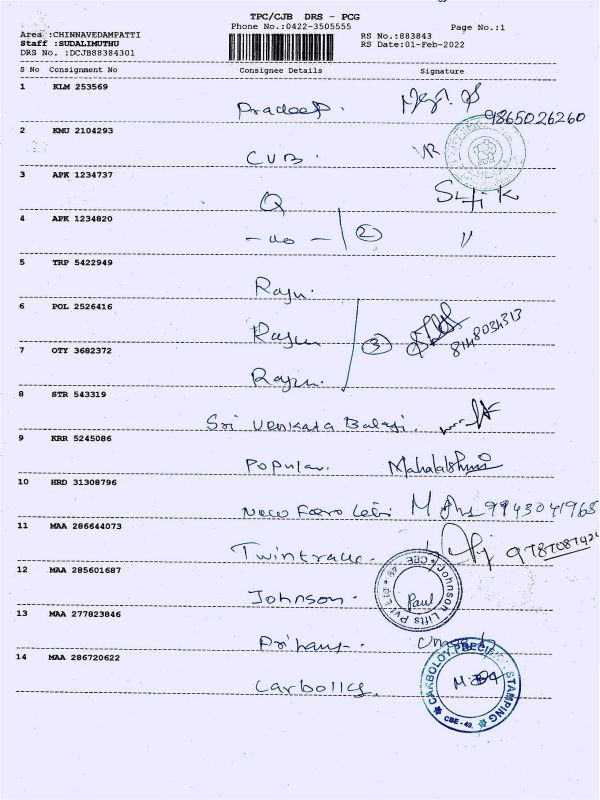 TPC/CJB DRS - PCG
Phone No.:0422-3505555 Page No.:1
Area :CHINNAVEDAMPATTI RS No.:883843
Staff :SUDALIMUTHU RS Date:01-Feb-2022
DRS No. :DCJB88384301
S No Consignment No Consignee Details Signature
1 KLM 253569
Pradeep. 9865026260
2 KMU 2104293
CUB.
3 APK 1234737
Q
4 APK 1234820
- do - 2 〃
5 TRP 5422949
Raju.
6 POL 2526416
Raju 3 8148034313
7 OTY 3682372
Raju.
8 STR 543319
Sri Venkata Balaji.
9 KRR 5245086
Popular. Mahalakshmi
10 HRD 31308796
9943041968
11 MAA 286644073
12 MAA 285601687
Johnson. Johnson Lifts Pvt Ltd CBE Paul
13 MAA 277823846
14 MAA 286720622
CARBOLOY PRECI STAMPING CBE-49.